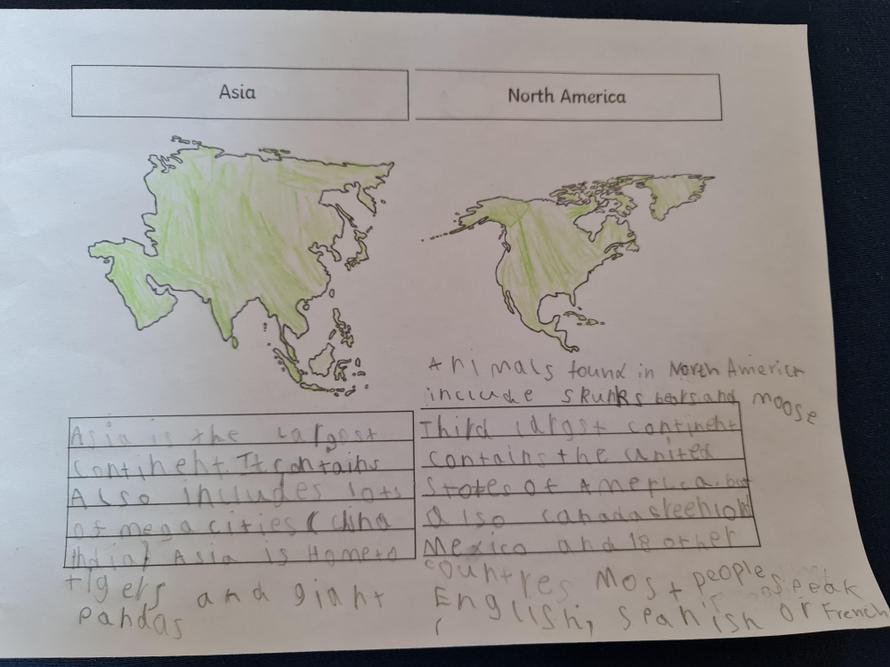 Asia
North America
Asia is the largest
continent. It contains
Also includes lots
of mega cities (china
india) Asia is Home to
tigers and giant
pandas
Animals found in North America
include skunks bears and moose
Third largst continent
contains the united
States of America. but
also canada
Mexico and 18 other
countres Most people speak
English, spanish or French